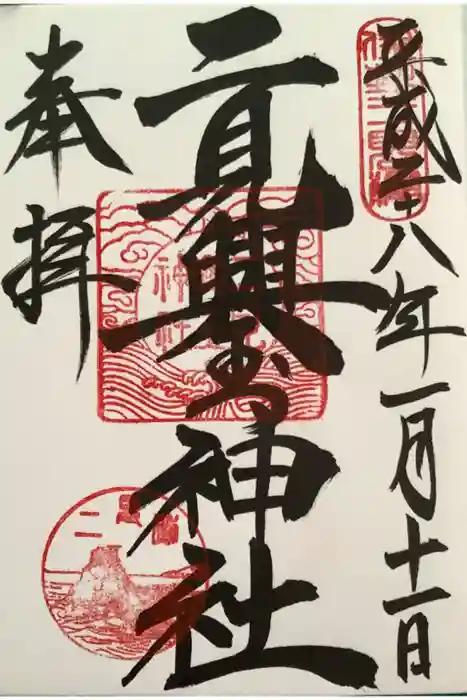 平成二十八年一月十一日
二見興玉神社
奉拝
神社
二見浦